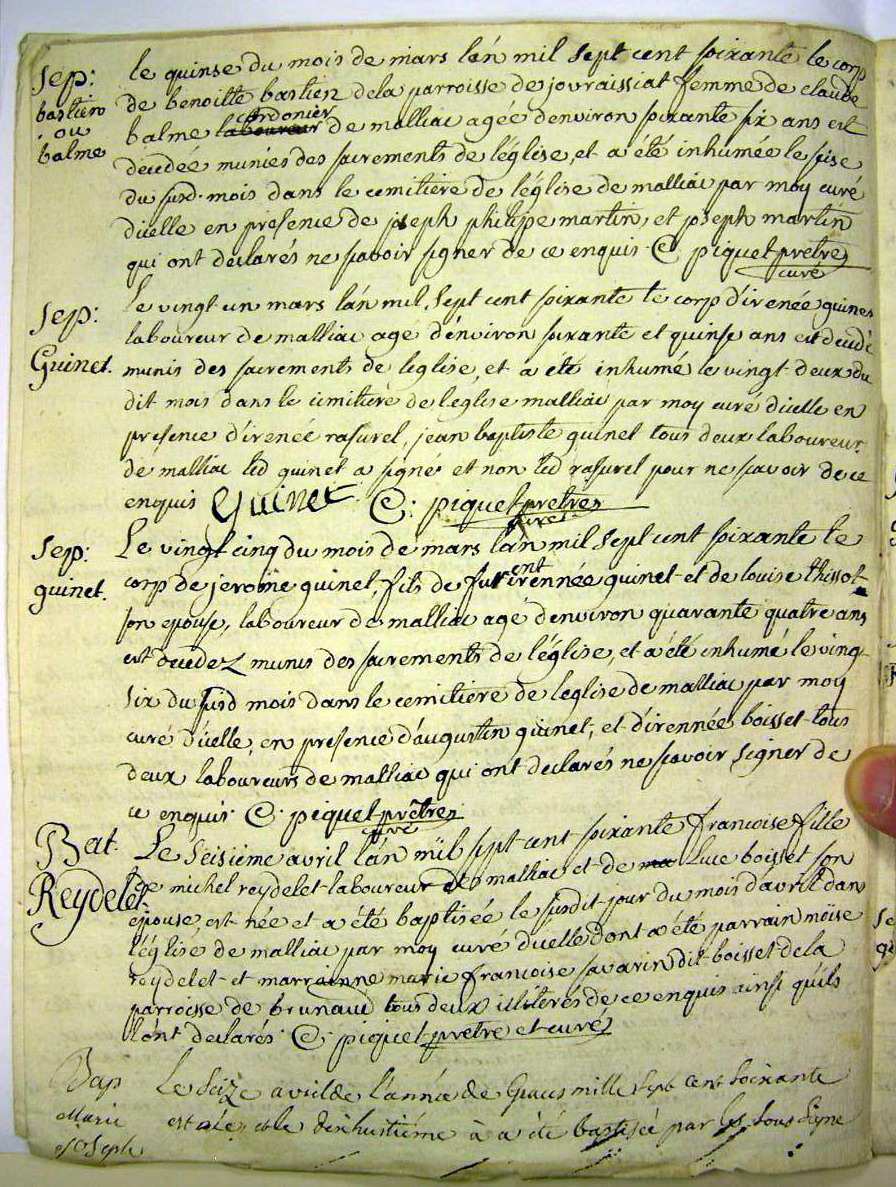 Sep:
bastien
ou
balme
le quinse du mois de mars lan mil sept cent soixante le corp
de benoitte bastien dela parroisse de jovraissiat femme de claude
cordonier
balme laboureur de malliac agée denviron soixante six ans est
decedée munies des sacrements de léglise, et a été inhumée le seise
du susd. mois dans le cemitiere de léglise de malliac par moy curé
dicelle en presence de joseph philipe martin, et joseph martin
qui ont declarés ne scavoir signer de ce enquis. C. piquet pretre
curé
Sep:
Guinet.
Le vingt un mars lán mil, sept cent soixante le corp direnée guinet
laboureur de malliac age dénviron soixante et quinse ans est decedé
munis des sacrements de leglise, et a eté inhumé le vingt deux du
dit mois dans le cimitiere de leglise malliac par moy curé dicelle en
présence d'irenée rasurel, jean baptiste guinet tous deux laboureur
de malliac led guinet a signé et non led rasurel pour ne scavoir de ce
enquis Guinet C: piquet pretre
curé
Sep:
guinet.
Le vingt cinq du mois de mars lán mil sept cent soixante le
corp de jerome guinet, fils de furent irennée guinet et de louise thissot
son epouse, laboureur de malliac agé denviron quarante quatre ans
est decedez munis des sacrements de l'église, et a été inhumé le vingt
six du susd mois dans le cemitiere de leglise de malliac par moy
curé dicelle, en presence d'augustin guinet, et d'irennée boisset tous
deux laboureurs de malliac qui ont declarés ne scavoir signer de
ce enquis. C. piquet prêtre
curé
Bat.
Reydelet
Le séisiéme avril lán mil sept cent soixante francoise fille
de michel reydelet laboureur de malliac et de luce boisset son
epouse, est née et a été baptisée le susdit jour du mois d'avril dans
léglise de malliac par moy curé dicelle dont a été parrain moise
reydelet et marrainne marie francoise savarin dit boisset dela
parroisse de brunaud tous deux illiterés de ce enquis ainsi quils
lont declarés. C. piquet pretre et curé
Bap
Marie
Joseph
Le Seize avril de lánnée de Graces mille sept cent soixante
est née, et le dixhuitiéme a été baptisée par les sous signe